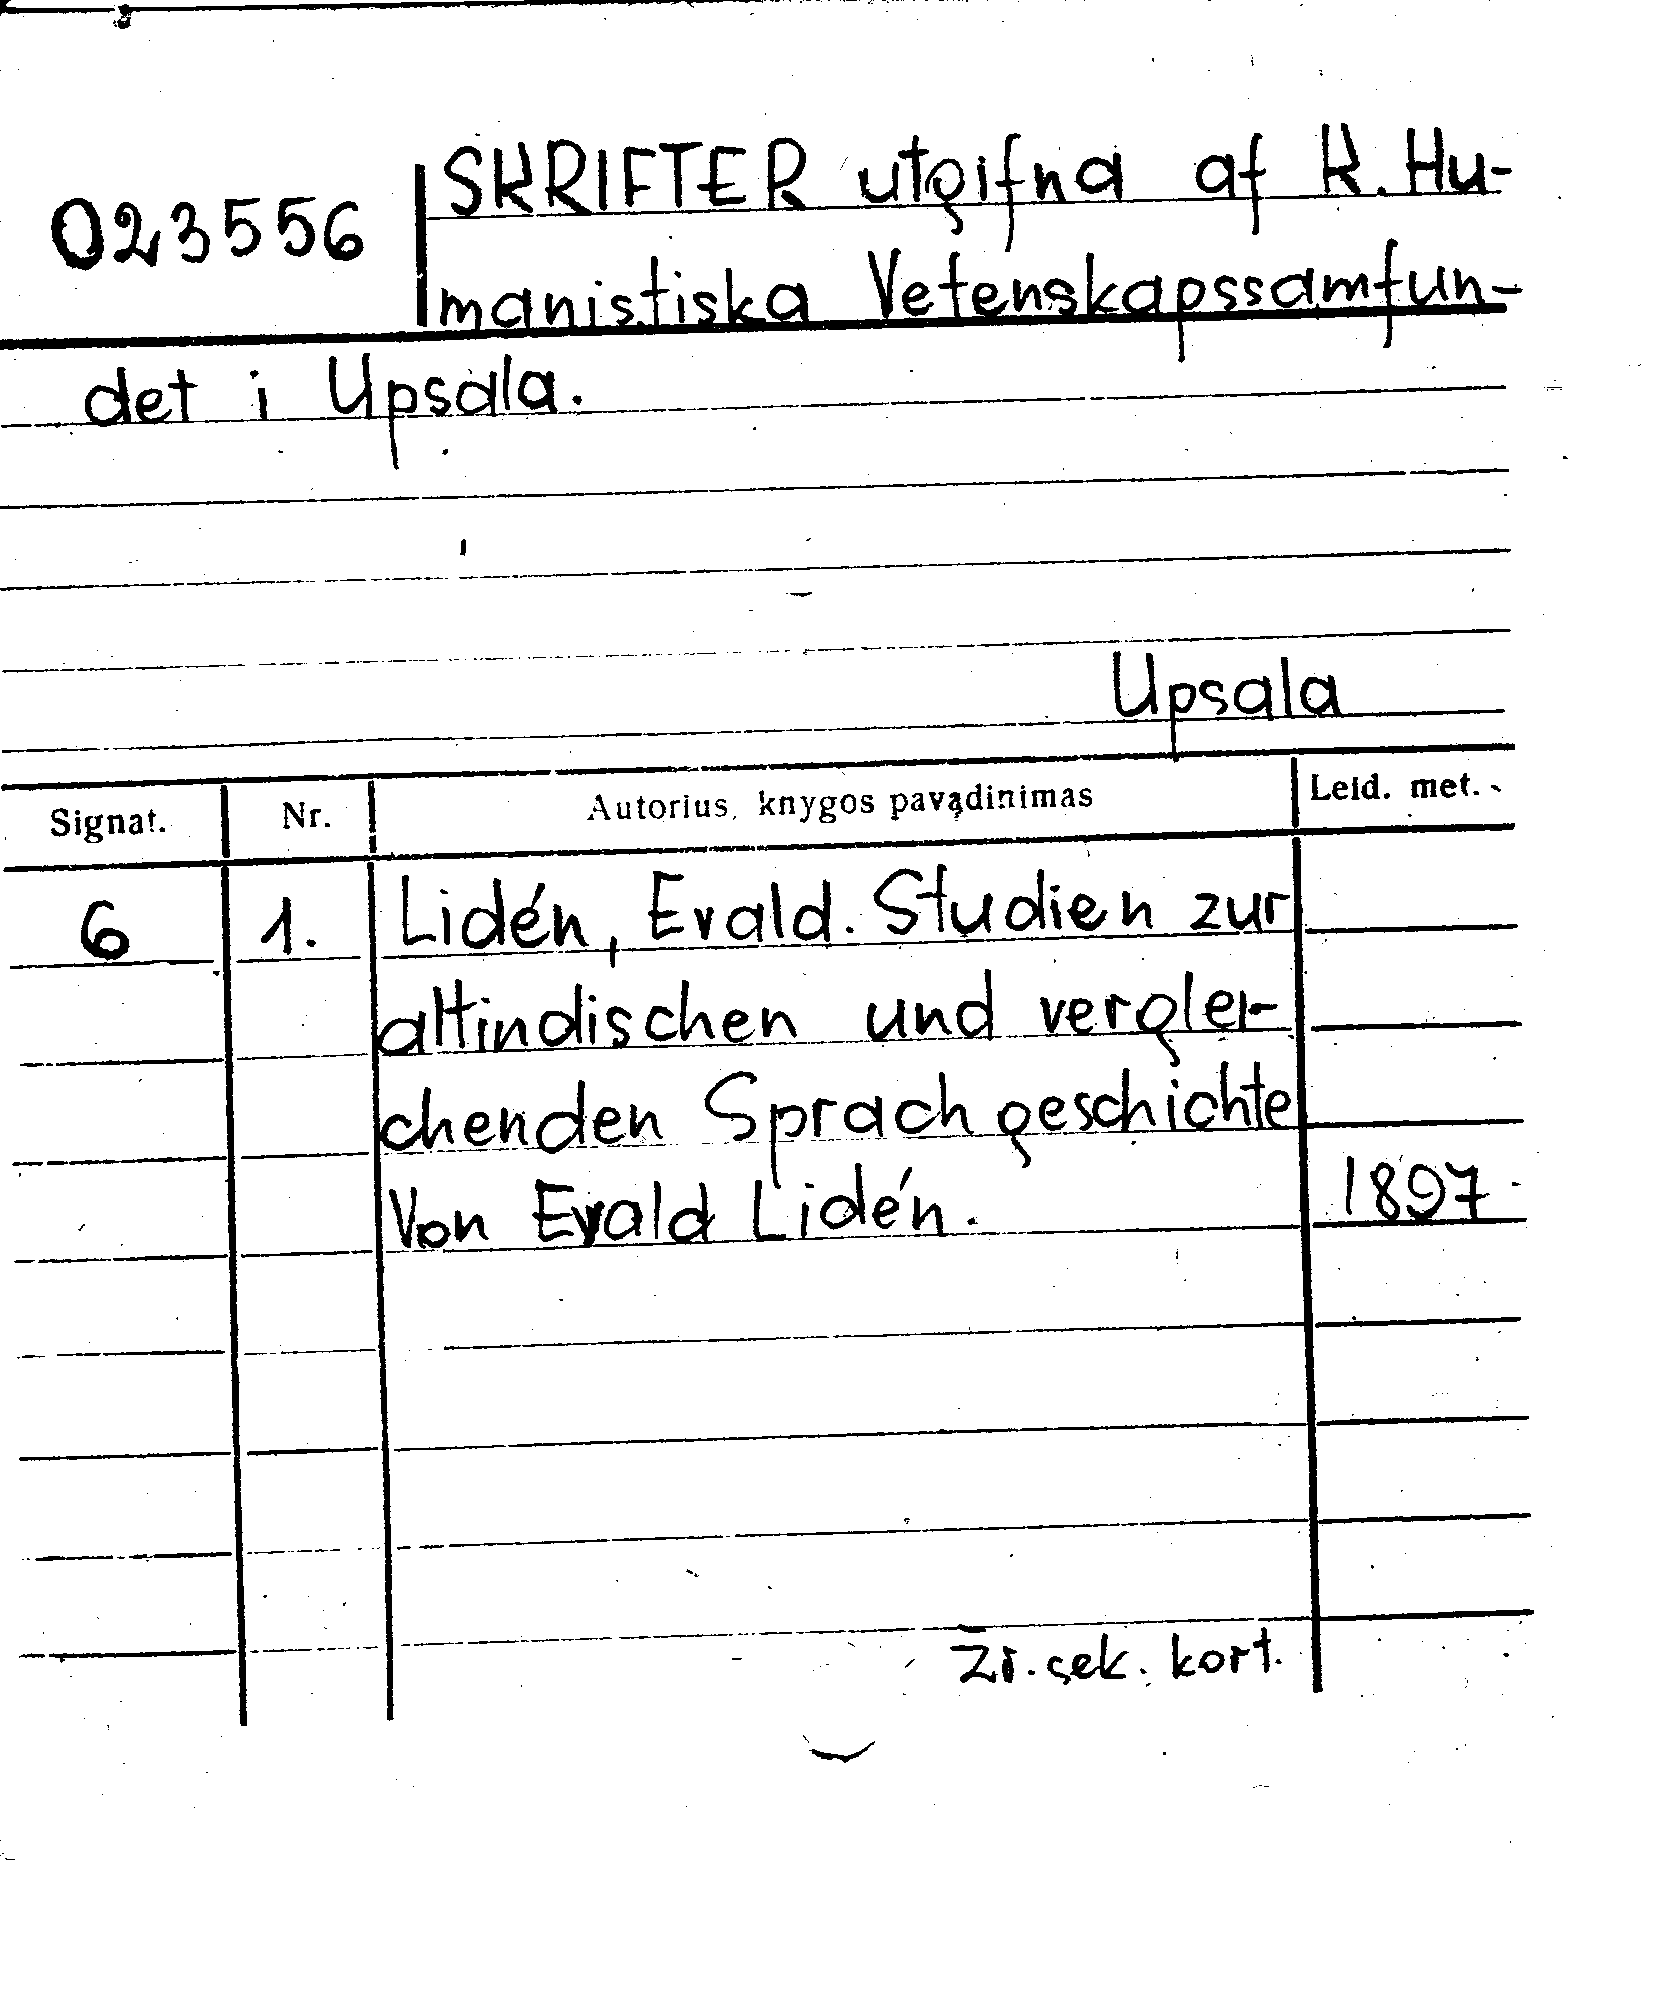 023556
SKRIFTER utgifna af K. Hu-
manistiska Vetenskapssamfun-
det i Upsala.
Upsala
Signat. Nr. Autorius, knygos pavadinimas Leid. met.
6 1. Lidén, Evald. Studien zur
altindischen und verglei-
chenden Sprachgeschichte
Von Evald Lidén. 1897
Žr. sek. kort.